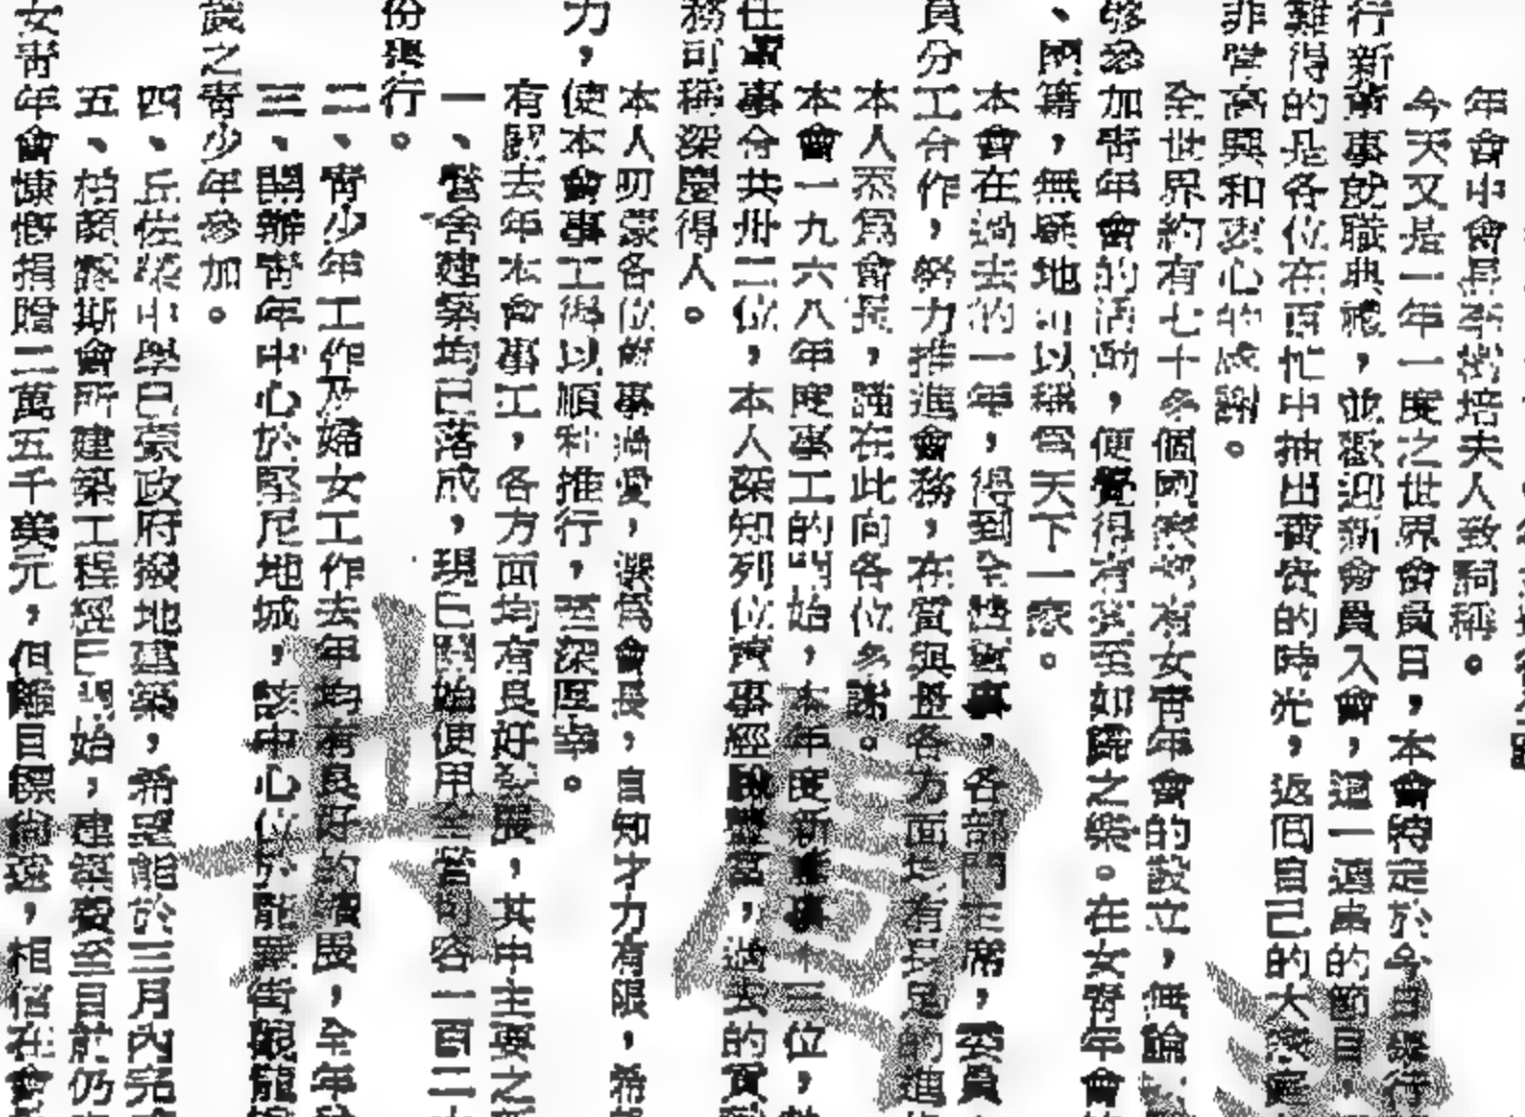 年會中會長李樹培夫人致詞稱。
今天又是一年一度之世界會員日，本會特定於今日舉行
行新董事就職典禮，並歡迎新會員入會，這一週末的節目，
難得的是各位在百忙中抽出寶貴的時光，返回自己的大家庭
非常高興和衷心的感謝。
全世界約有七十多個國家都有女青年會的設立，無論
够參加青年會的活動，便覺得有賓至如歸之樂。在女青年會
、國籍，無疑地可以稱爲天下一家。
本會在過去的一年，得到全體董事，各部門主席，委員
員分工合作，努力推進會務，在質與量各方面均有長足的進
本人忝爲會長，謹在此向各位多謝。
本會一九六八年度事工的開始，本年度新董事十三位，
任董事合共卅二位，本人深知列位董事經驗豐富，過去的貢
務司稱深慶得人。
本人叨蒙各位董事過愛，選爲會長，自知才力有限，希
力，使本會事工得以順利推行，至深厚幸。
有關去年本會事工，各方面均有良好發展，其中主要之
一、營舍建築均已落成，現已開始使用全營可容一百二
份舉行。
二、青少年工作及婦女工作去年均有良好的擴展，全年
三、開辦青年中心於堅尼地城，該中心位於龍華街觀龍
歲之青少年參加。
四、丘佐榮中學已蒙政府撥地建築，希望能於三月內完
五、柏顏露斯會所建築工程經已開始，建築費至目前仍
女青年會慷慨捐贈二萬五千美元，但離目標尚遠，相信在會